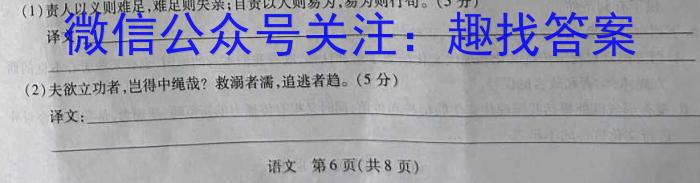 (1)责人以义则难足,难足则失亲;自责以人则易为,易为则行苟。(5分)
译文
微信公众号关注：趣找答案
(2)夫欲立功者,岂得中绳哉？救溺者濡,追逃者趋。(5分)
译文：
语文 第6页(共8页)